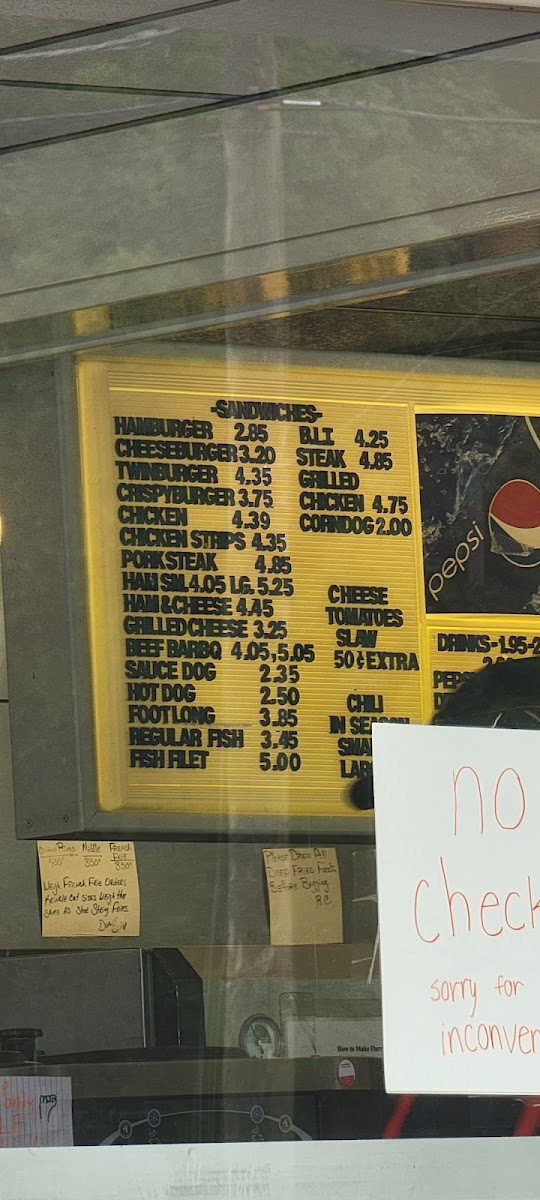 -SANDWICHES-
HAMBURGER 2.85
CHEESEBURGER 3.20
TWINBURGER 4.35
CRISPYBURGER 3.75
CHICKEN 4.39
CHICKEN STRIPS 4.35
PORK STEAK 4.85
HAM SM. 4.05 LG. 5.25
HAM & CHEESE 4.45
GRILLED CHEESE 3.25
BEEF BARBQ 4.05,5.05
SAUCE DOG 2.35
HOT DOG 2.50
FOOTLONG 3.85
REGULAR FISH 3.45
FISH FILET 5.00
B.L.T 4.25
STEAK 4.85
GRILLED
CHICKEN 4.75
CORNDOG 2.00
CHEESE
TOMATOES
SLAW
50¢ EXTRA
CHILI
IN SEASON
SMA
LAR
pepsi
DRINKS-1.95-2
PEPS
no
check
sorry for
inconven
French
Weigh French Frie Orders
Please Drain All
Deep Fried Foods
Before Bagging
B.C.
How to Make Flurr